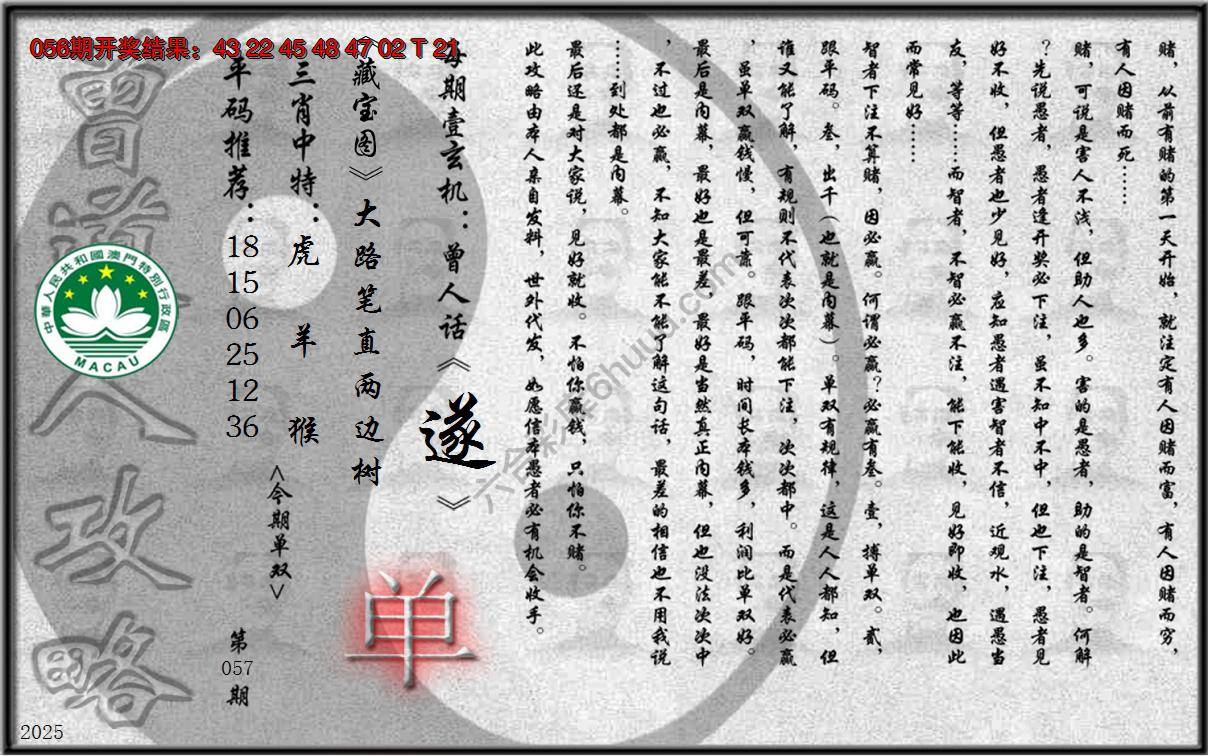 056期开奖结果：43 22 45 48 47 02 T 21
赌，从前有赌的第一天开始，就注定有人因赌而富，有人因赌而穷，
有人因赌而死……
赌，可说是害人不浅，但助人也多。害的是愚者，助的是智者。何解
？先说愚者，愚者逢开奖必下注，虽不知中不中，但也下注，愚者见
好不收，但愚者也少见好，应知愚者遇害智者不信，近观水，遇愚当
友，等等……而智者，不智必赢不注，能下能收，见好即收，也因此
而常见好……
智者下注不算赌，因必赢。何谓必赢？必赢有叁。壹，搏单双。贰，
跟平码。叁，出千（也就是内幕）。单双有规律，这是人人都知，但
谁又能了解，有规则不代表次次都能下注，次次都中。而是代表必赢
，虽单双赢钱慢，但可靠。跟平码，时间长本钱多，利润比单双好。
最后是内幕，最好也是最差，最好是当然真正内幕，但也没法次次中
，不过也必赢，不知大家能不能了解这句话，最差的相信也不用我说
……到处都是内幕。
最后还是对大家说，见好就收。不怕你赢钱，只怕你不赌。
此攻略由本人亲自发料，世外代发，如愿信本愚者必有机会收手。
每期壹玄机：曾人话《遂》
《藏宝图》大路笔直两边树
三肖中特：虎 羊 猴
<今期单双>
单
平码推荐：18 15 06 25 12 36
第
057
期
曾道人攻略
中華人民共和國澳門特別行政區
MACAU
六合彩库6huuu.com
2025